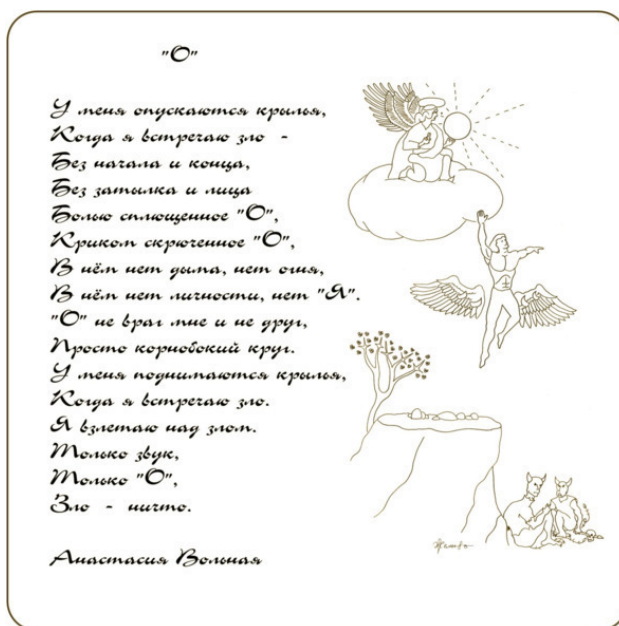 "О"
У меня опускаются крылья,
Когда я встречаю зло -
Без начала и конца,
Без затылка и лица
Болью сплющенное "О",
Криком скрюченное "О",
В нём нет дыма, нет огня,
В нём нет личности, нет "Я".
"О" не враг мне и не друг,
Просто корнобокий круг.
У меня поднимаются крылья,
Когда я встречаю зло.
Я взлетаю над злом.
Только звук,
Только "О",
Зло - ничто.
Анастасия Вольная